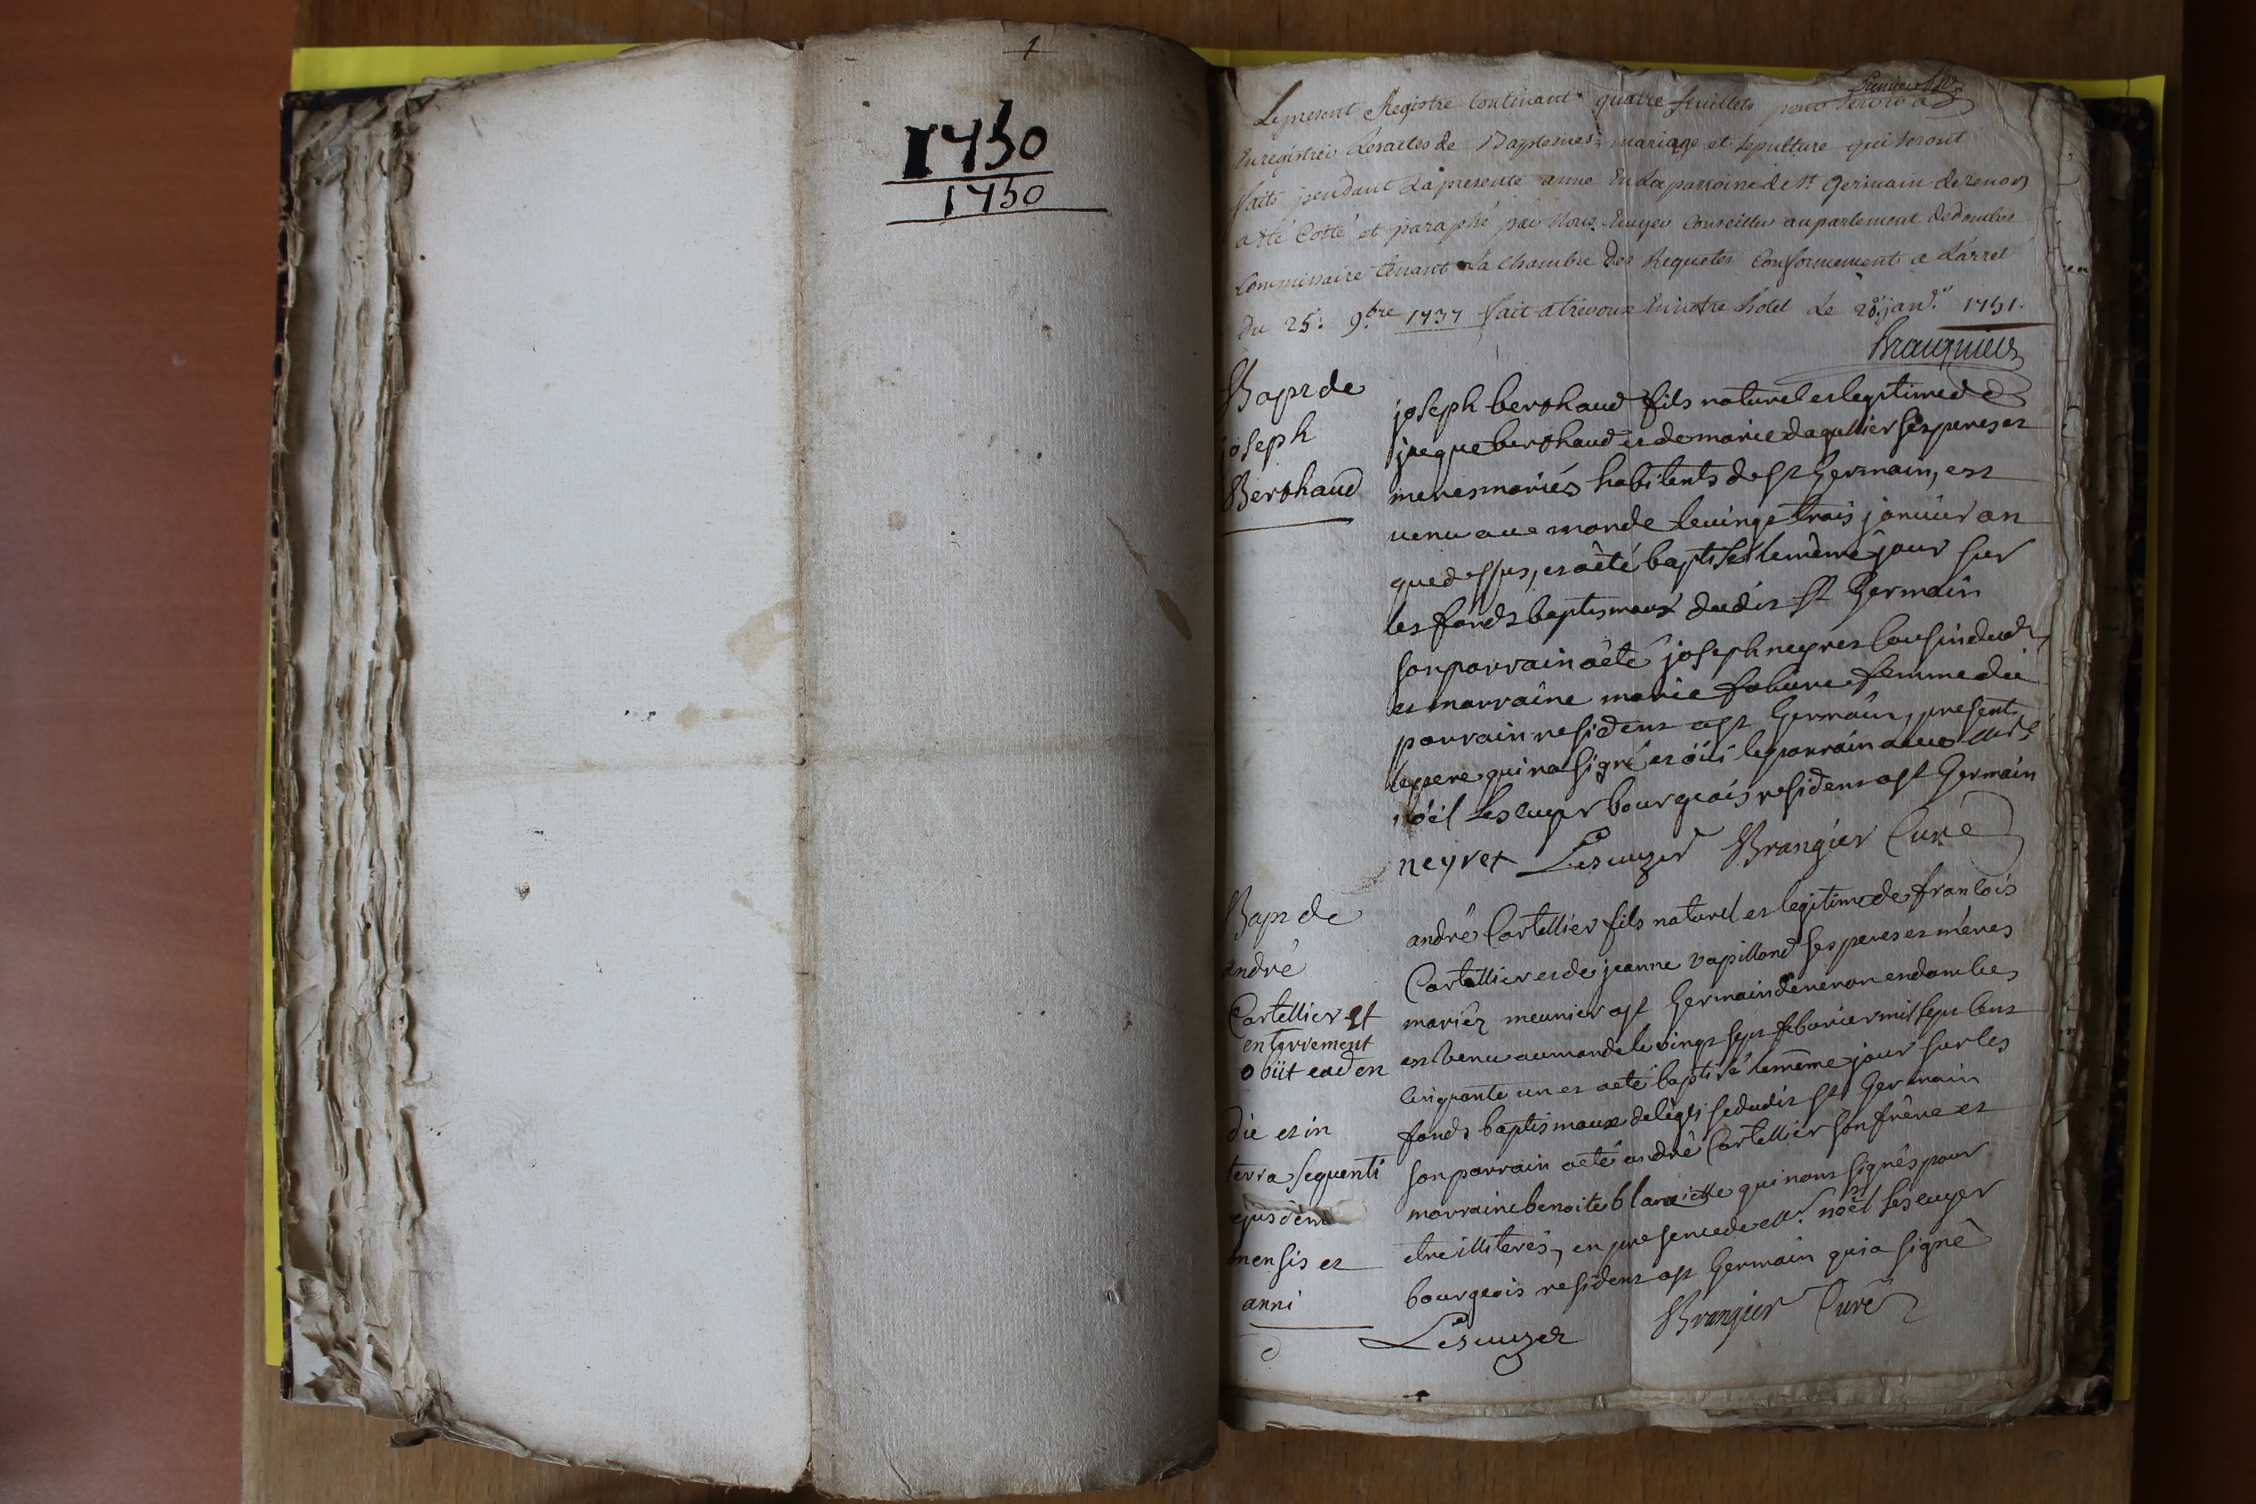 1
1750
1750
Premier
Le present Registre Contenant quatre feuillets pour servir a
Enregistrer Les actes de Baptesmes, mariage et sepulture qui seront
faits pendant La presente anne En La parroine de St Germain de renon
a été Cotté et paraphé par Nous Ecuyer Conseiller au parlement de dombes
Commissaire tenant La Chambre des Requetes Conformement a L'arret
du 25e 9bre 1737 fait a trevoux En notre hotel Le 28 janr. 1751.
Brauquier
Bapt de
joseph
Berthaud
joseph berthaud fils naturel et legitime de
jacque berthaud et de marie dagallier ses peres et
meres mariés habitents de st Germain, est
venu aue monde le vingt trois janvier an
que dessus, et a êté baptisé le même jour sur
les fonds baptismaux dudit st Germain
son parrain a êté joseph neyret cousin dud
et marraine marie febure femme du
parrain resident a st Germain, present
le pere qui na signé et öui le parrain avec Mr
nöel Lescuyer bourgeois resident a st Germain
neyret Lescuyer Brangier Curé
Bapt de
andré
Cartellier et
enterrement
obiit eadem
die et in
terra sequenti
ejusdem
mensis et
anni
andré Cartellier fils naturel et legitime de francois
Cartellier et de jeanne vapillond ses peres et méres
mariéz meunier a st Germain de renon en dombes
est venu au monde le vingt sept febvrier mil sept cent
cinquante un et a eté baptisé le même jour sur les
fonds baptismaux de leglise dudit st Germain
son parrain a eté andré Cartellier son frêre et
marraine benoite blanchette qui nont signés pour
etre illiterés, en presence de Mr. noël Lescuyer
bourgeois resident a st Germain qui a signé
Lescuyer Brangier Curé